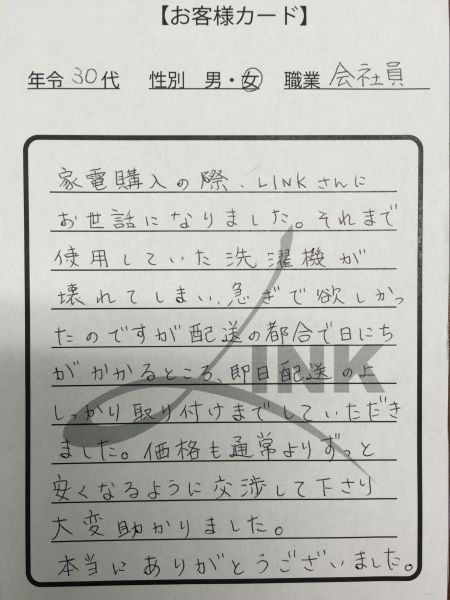 【お客様カード】
年令 30代 性別 男・女 職業 会社員
家電購入の際、LINKさんに
お世話になりました。それまで
使用していた洗濯機が
壊れてしまい、急ぎで欲しかっ
たのですが配送の都合で日にち
がかかるところ、即日配送の上
しっかり取り付けまでしていただき
ました。価格も通常よりずっと
安くなるように交渉して下さり
大変助かりました。
本当にありがとうございました。
LINK